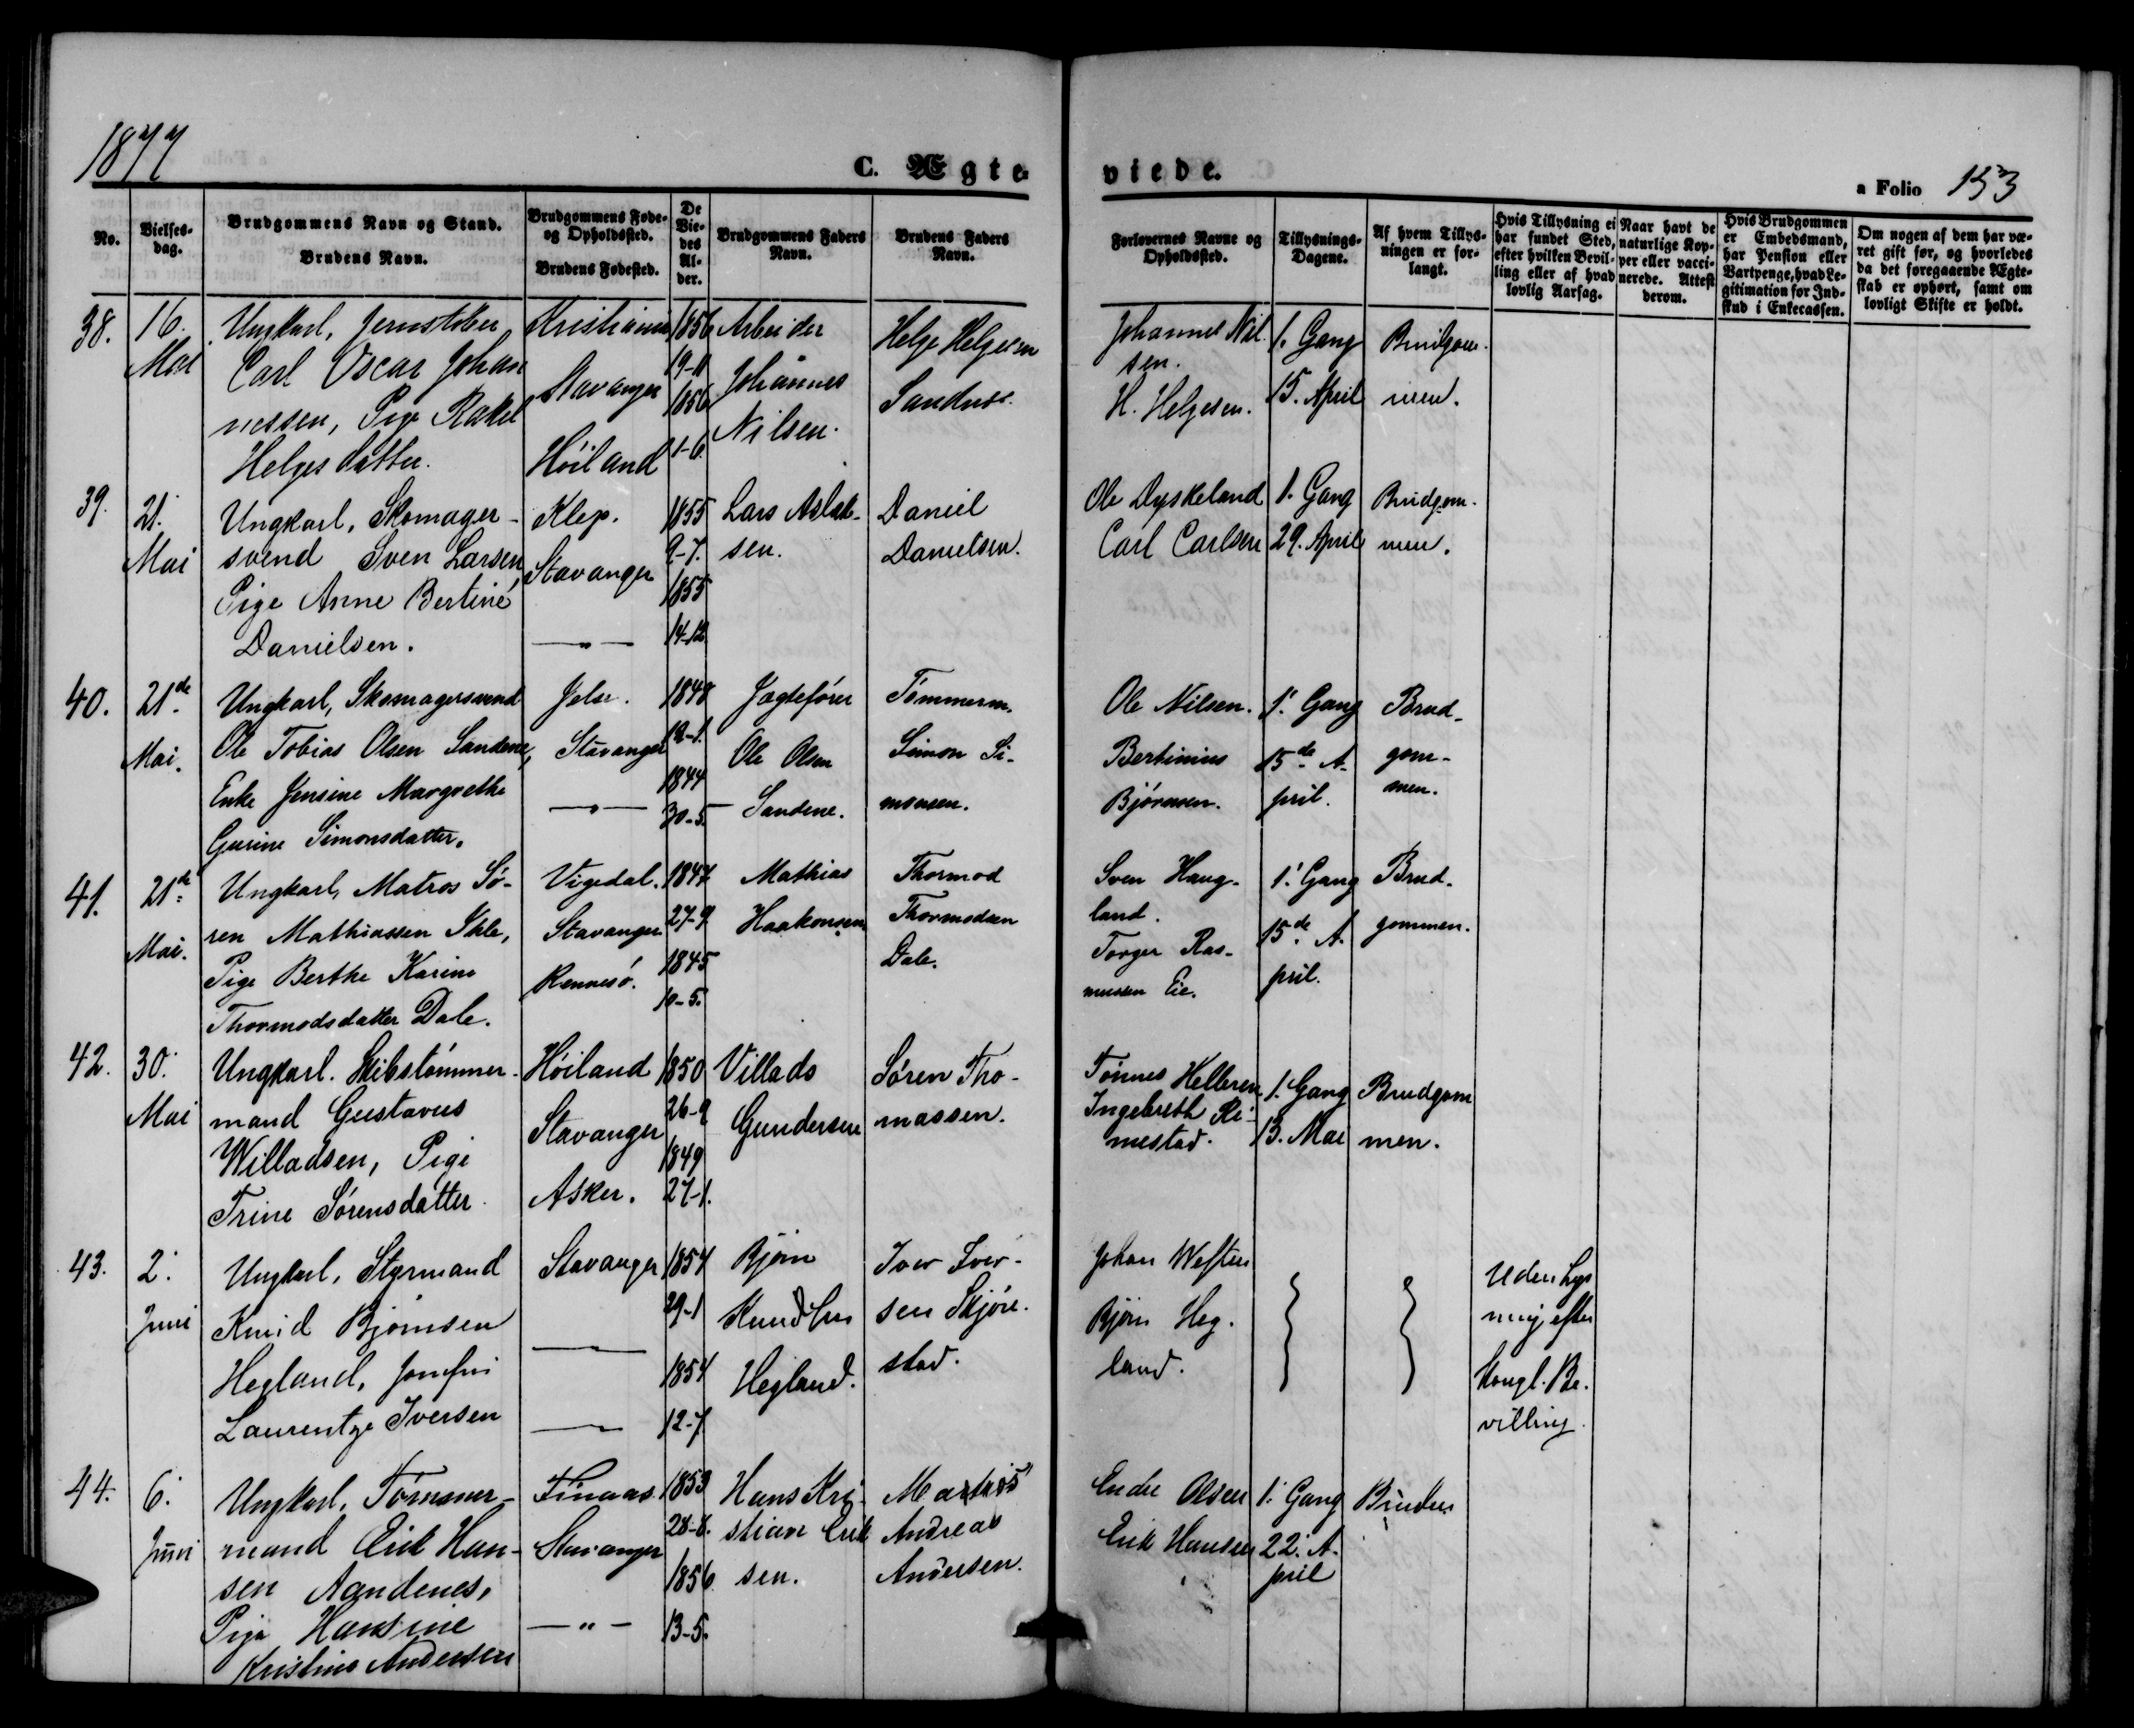 1877
C. Ægte-
viede.
a Folio 153
No.
Vielses-
dag.
Brudgommens Navn og Stand.
Brudens Navn.
Brudgommens Føde-
og Opholdssted.
Brudens Fødested.
De
Vie-
des
Al-
der.
Brudgommens Faders
Navn.
Brudens Faders
Navn.
Forlovernes Navne og
Opholdssted.
Tillysnings-
Dagene.
Af hvem Tillys-
ningen er for-
langt.
Hvis Tillysning ei
har fundet Sted,
efter hvilken Bevil-
ling eller af hvad
lovlig Aarsag.
Naar havt de
naturlige Kop-
per eller vacci-
nerede. Attest
derom.
Hvis Brudgommen
er Embedsmand,
har Pension eller
Vartpenge, hvad Le-
gitimation for Ind-
skud i Enkecassen.
Om nogen af dem har væ-
ret gift før, og hvorledes
da det foregaaende Ægte-
skab er ophørt, samt om
lovligt Skifte er holdt.
38.
16.
Mai
Ungkarl, Jernstøber
Carl Oscar Johan
nessen, Pige Rakel
Helgesdatter.
Kristiania
Stavanger
Høiland
1856
19-11
1856
1-6.
Arbeider
Johannes
Nilsen.
Helge Helgesen
Sandnes.
Johannes Nil-
sen.
H. Helgesen.
1. Gang
15. April
Brudgom-
men.
39.
21.
Mai
Ungkarl, Skomager-
svend Sven Larsen,
Pige Anne Bertine
Danielsen.
Klep.
Stavanger
— " —
1855
9-7.
1855
14-12
Lars Aslak-
sen.
Daniel
Danielsen.
Ole Dyskeland
Carl Carlsen
1. Gang
29. April
Brudgom-
men.
40.
21de
Mai.
Ungkarl, Skomagersvend
Ole Tobias Olsen Sandene,
Enke Jensine Margrethe
Gurine Simonsdatter.
Jelse.
Stavanger
— " —
1848
12-1.
1844
30-5.
Jagtefører
Ole Olsen
Sandene.
Tømmerm.
Simon Si-
monsen.
Ole Nilsen.
Bertinius
Bjørnsen.
1. Gang
15de A-
pril.
Brud-
gom-
men.
41.
21de
Mai.
Ungkarl, Matros Sø-
ren Mathiassen Ihle,
Pige Berthe Karine
Thormodsdatter Dale.
Vigedal.
Stavanger
Rennesø.
1847
27-9
1845
10-5.
Mathias
Haakonsen
Thormod
Thormodsen
Dale.
Sven Haug-
land.
Torger Ras-
mussen Eie.
1. Gang
15de A.
pril.
Brud-
gommen.
42.
30.
Mai
Ungkarl. Skibstømmer-
mand Gustavus
Willadsen, Pige
Trine Sørensdatter
Høiland
Stavanger
Asker.
1850
26-9
1849
27-1.
Villads
Gundersen
Søren Tho-
massen.
Tønnes Helleren
Ingebreth Ri-
mestad.
1. Gang
13. Mai
Brudgom
men.
43.
2.
Juni
Ungkarl, Styrmand
Knud Bjørnsen
Hegland, Jomfru
Laurentze Iversen
Stavanger
— " —
— " —
1854
29-1
1854
12-7
Bjørn
Knudsen
Hegland.
Iver Iver-
sen Skjøre-
stad.
Johan
Bjørn Heg-
land.
Uden Lys
ning efter
Kongl. Be-
villing.
44.
6.
Juni
Ungkarl, Tømmer-
mand Erik Han-
sen Aandenes,
Pige Hansine
Kristine Andersen
Finaas
Stavanger
— " —
1853
28-8.
1856
13-5.
Hans Kri-
stian Erik
sen.
Martias
Andreas
Andersen.
Endre Olsen
Erik Hansen
1. Gang
22. A-
pril
Bruden